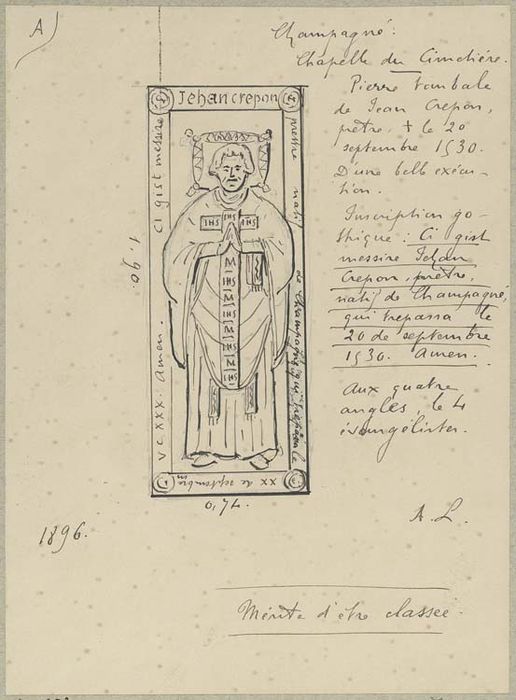 A)
Champagné :
Chapelle du Cimetière.
Pierre tombale
de Jean Crepon,
prêtre, † le 20
septembre 1530.
D'une belle exécu-
tion.
Inscription go-
thique : Ci gist
messire Jehan
Crepon, prêtre,
natif de Champagné,
qui trepassa le
20 de septembre
1530. Amen.
Aux quatre
angles, le 4
évangélistes.
A. L.
Ci gist messire
Jehan crepon
prestre natif de Champagne qui trepassa le
XX de septembre
VCXXX. Amen.
IHS IHS IHS
M
IHS
M
IHS
M
IHS
M
IHS
1.90.
0,74.
1896.
Mérite d'être classée.